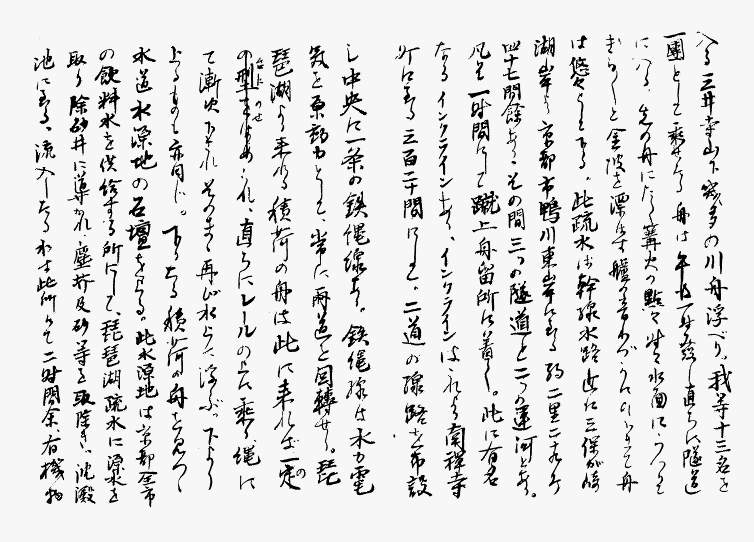 入る三井寺山下幾多の川舟浮べり。我等十三名を
一團として乗せたる舟は午后一時發し直ちに隧道
に入る、先の舟にたく篝火の點々出て水面にうつりて
きら〳〵と金波を漂はす
は悠々として下る。此疏水は幹線水路 三保が崎
湖岸より京都市鴨川東岸に至る約二里二十九丁
四十七間餘あり。その間三つの隧道と二つの運河とあり。
凡そ一時間にして蹴上舟留所に着く。此に有名
なるインクラインあり、インクラインはこれより南禅寺
町に至る三百二十間にして、二道の線路を布設
し中央に一条の鉄縄線あり。鉄縄線は水力電
気を原動力として、常に両道を回轉せり。琵
琶湖より来れる積荷の舟は此に来れば一定の
の型にはめられ、直ちにレールの上に乗り縄に
て漸次下され そのまゝ再び水上に浮ぶ、下より
上るものも亦同じ。下り上る積荷の舟を見つゝ
水道水源地の石壇を上る。此水源地は京都全市
の飲料水を供給する所にして、琵琶湖疏水に源水を
取り除砂井に導かれ、塵芥及砂等を取除き、沈澱
池に至る、流入したる水は此所にて二時間余、有機物